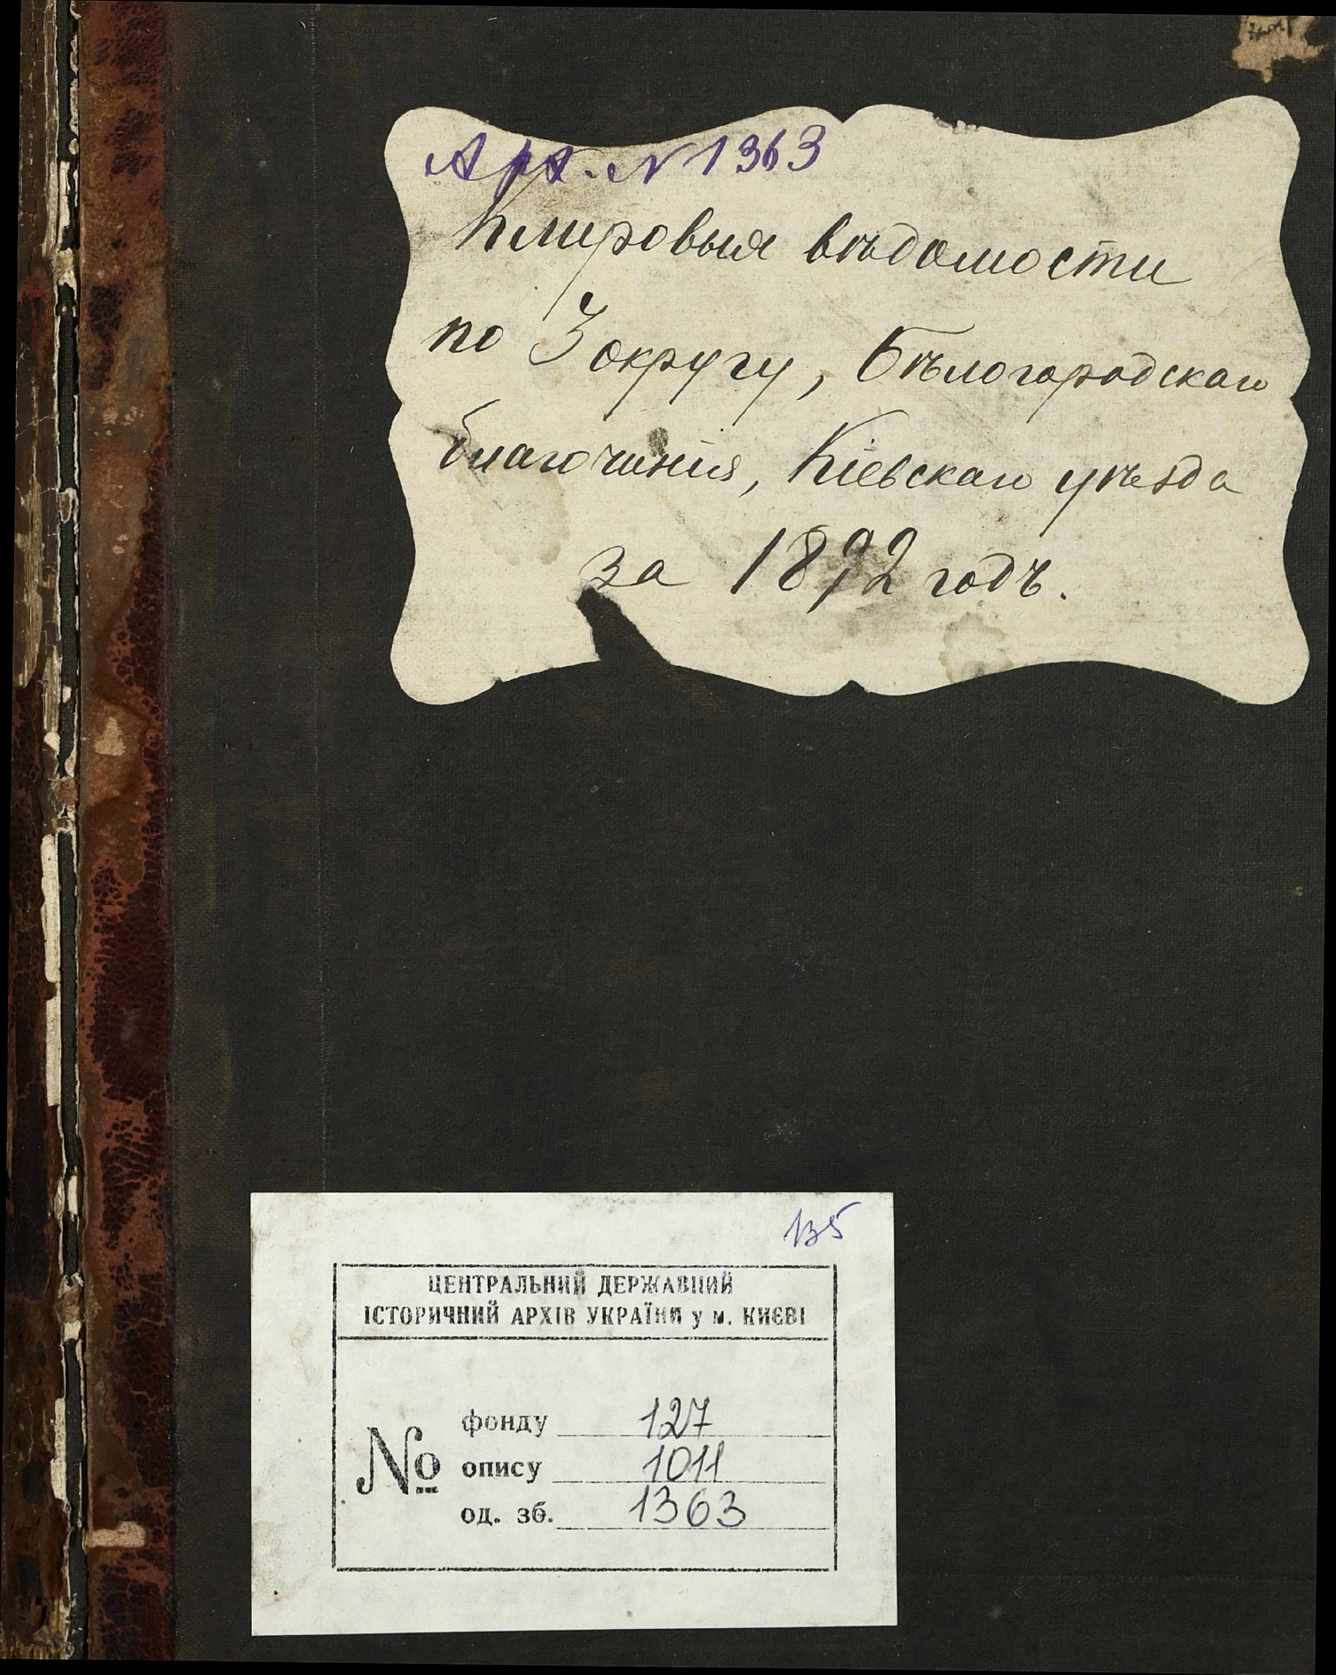 Арх. № 1363
Клировыя вѣдомости
по 3 округу, Бѣлогородскаго
благочинія, Кіевскаго уѣзда
за 1892 годъ.
135
ЦЕНТРАЛЬНИЙ ДЕРЖАВНИЙ
ІСТОРИЧНИЙ АРХІВ УКРАЇНИ у м. КИЄВІ
№
фонду 127
опису 1011
од. зб. 1363